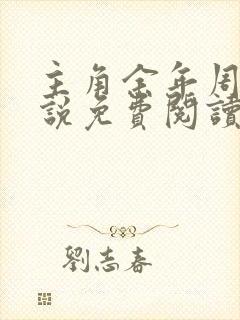 主角金年周
說免費閱讀
劉志春